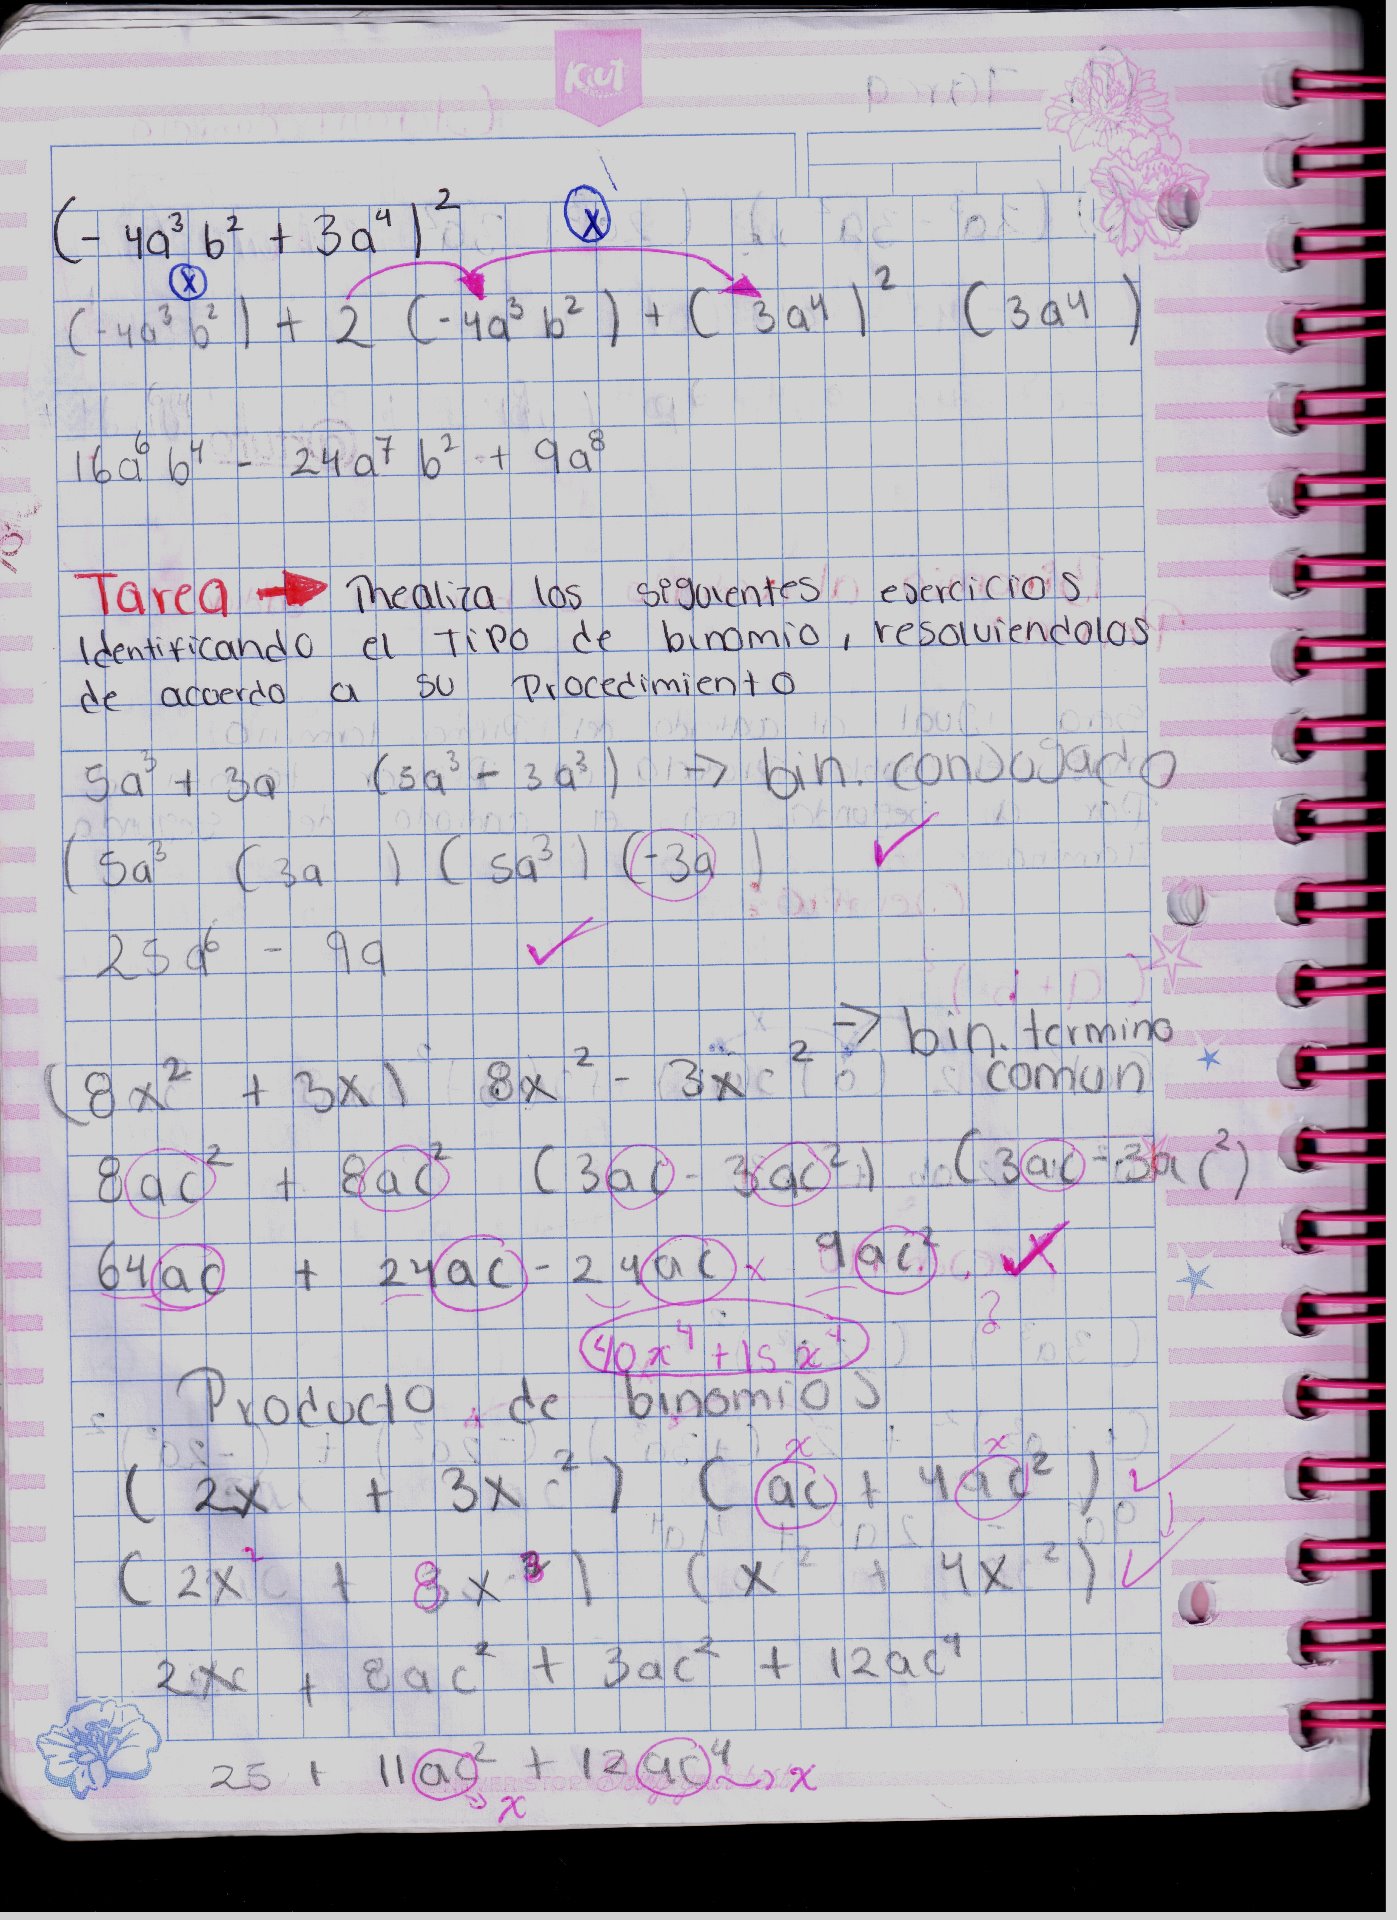 Kiut
(-4a³b² + 3a⁴)² x
x
(-4a³b²) + 2 (-4a³b²) + (3a⁴)² (3a⁴)
16a⁶b⁴ - 24a⁷b² + 9a⁸
Tarea → Realiza los siguientes ejercicios
identificando el tipo de binomio, resolviendolos
de acuerdo a su Procedimiento
5a³ + 3a (5a³ - 3a³) → bin. conjugado
(5a³ (3a) (5a³) (-3a) ✓
25a⁶ - 9a ✓
→ bin. termino
(8x² + 3x) 8x² - 3x² comun
8ac² + 8ac² (3ac - 3ac²) (3ac - 3ac²)
64ac + 24ac - 24ac x 9ac²
?
40x⁴ + 15x⁴
Producto de binomios
x x
(2x + 3x²) (ac + 4ac²) ✓
(2x² + 8x³) (x² + 4x²) ✓
2xc + 8ac² + 3ac² + 12ac⁴
25 + 11ac² + 12ac⁴ → x
→ x